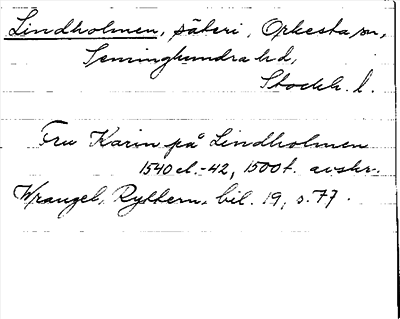 Lindholmen, säteri, Orkesta sn,
Seminghundra hd,
Stockh. l.
Fru Karin på Lindholmen
1540 el. -42, 1500 t. avskr.
Wrangel, Ryttern, bil. 19, s. 77.